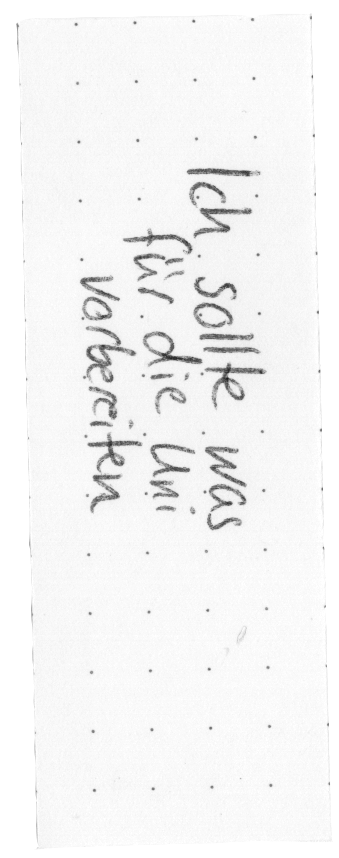 Ich sollte was
für die Uni
vorbereiten